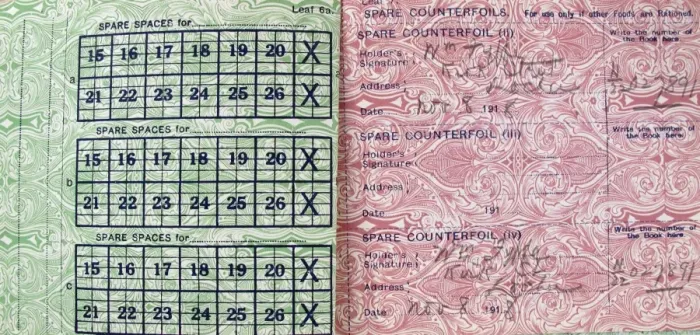 Leaf 6a.
SPARE SPACES for
15 16 17 18 19 20 X
a
21 22 23 24 25 26 X
SPARE SPACES for
15 16 17 18 19 20 X
b
21 22 23 24 25 26 X
SPARE SPACES for
15 16 17 18 19 20 X
c
21 22 23 24 25 26 X
SPARE COUNTERFOILS. For use only if other Foods are Rationed.
SPARE COUNTERFOIL (ii)
Write the number of the Book here.
Holder's Signature
Wm
Address
Date Nov 8 1918
SPARE COUNTERFOIL (iii)
Write the number of the Book here.
Holder's Signature
Address
Date 191
SPARE COUNTERFOIL (iv)
Write the number of the Book here.
Holder's Signature
Wm
Address
Date Nov 8 1918